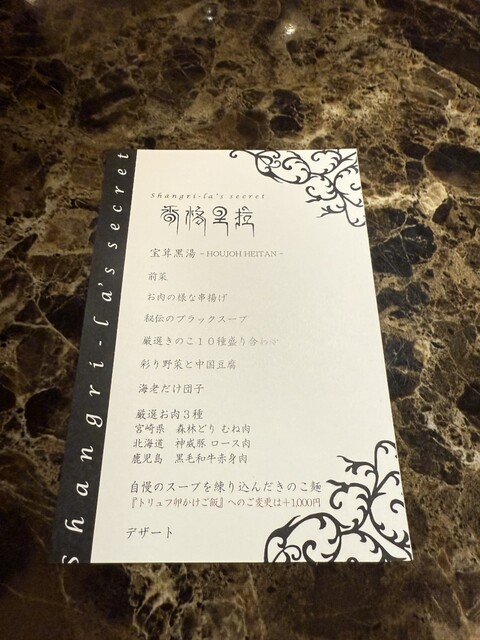 Shangri-la's secret
Shangri-la's secret
香格里拉
宝茸黒湯 - HOUJOH HEITAN -
前菜
お肉の様な串揚げ
秘伝のブラックスープ
厳選きのこ10種盛り合わせ
彩り野菜と中国豆腐
海老だけ団子
厳選お肉3種
宮崎県 森林どり むね肉
北海道 神威豚 ロース肉
鹿児島 黒毛和牛赤身肉
自慢のスープを練り込んだきのこ麺
『トリュフ卵かけご飯』へのご変更は+1,000円
デザート